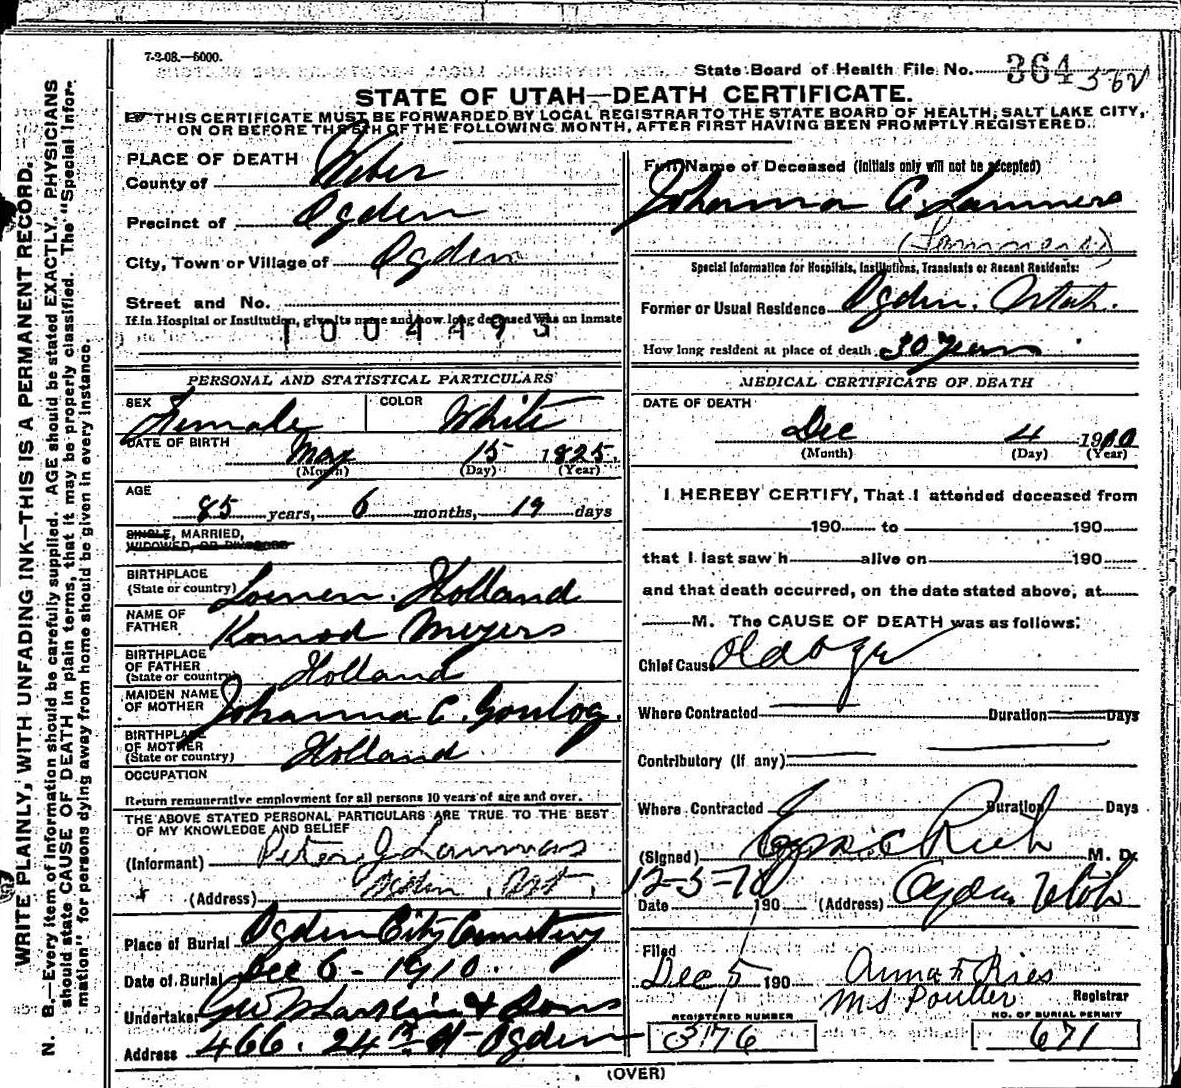 7-2-08.—5000.
State Board of Health File No. 364
STATE OF UTAH—DEATH CERTIFICATE.
THIS CERTIFICATE MUST BE FORWARDED BY LOCAL REGISTRAR TO THE STATE BOARD OF HEALTH, SALT LAKE CITY,
ON OR BEFORE THE 5TH OF THE FOLLOWING MONTH, AFTER FIRST HAVING BEEN PROMPTLY REGISTERED.
WRITE PLAINLY, WITH UNFADING INK—THIS IS A PERMANENT RECORD.
N. B.—Every item of information should be carefully supplied. AGE should be stated EXACTLY. PHYSICIANS
should state CAUSE OF DEATH in plain terms, that it may be properly classified. The "Special Infor-
mation" for persons dying away from home should be given in every instance.
PLACE OF DEATH
County of Weber
Precinct of Ogden
City, Town or Village of Ogden
Street and No.
If in Hospital or Institution, give its name and how long deceased was an inmate
1004493
PERSONAL AND STATISTICAL PARTICULARS
SEX Female COLOR White
DATE OF BIRTH
May 15 1825.
(Month) (Day) (Year)
AGE
85 years, 6 months, 19 days
SINGLE, MARRIED,
WIDOWED, OR DIVORCED
BIRTHPLACE
(State or country) Holland
NAME OF
FATHER Konrad Meyers
BIRTHPLACE
OF FATHER
(State or country) Holland
MAIDEN NAME
OF MOTHER Johanna C.
BIRTHPLACE
OF MOTHER
(State or country) Holland
OCCUPATION
Return remunerative employment for all persons 10 years of age and over.
THE ABOVE STATED PERSONAL PARTICULARS ARE TRUE TO THE BEST
OF MY KNOWLEDGE AND BELIEF
(Informant) Peter J Lammers
(Address) Ogden, Ut.
Place of Burial Ogden City Cemetery
Date of Burial Dec 6 - 1910.
Undertaker & Sons
Address 466. 24th St Ogden
Full Name of Deceased (Initials only will not be accepted)
Johanna C. Lammers
(Lammers)
Special Information for Hospitals, Institutions, Transients or Recent Residents:
Former or Usual Residence Ogden. Utah.
How long resident at place of death 30 Years
MEDICAL CERTIFICATE OF DEATH
DATE OF DEATH
Dec 4 1910
(Month) (Day) (Year)
I HEREBY CERTIFY, That I attended deceased from
190 to 190
that I last saw h alive on 190
and that death occurred, on the date stated above, at
M. The CAUSE OF DEATH was as follows:
Chief Cause Old age
Where Contracted Duration Days
Contributory (if any)
Where Contracted Duration Days
(Signed) Rich M. D.
12-5-10
Date 190 (Address) Ogden Utah
Filed
Dec 5 190 Anna F Ries
M S Poulter Registrar
REGISTERED NUMBER
3176
NO. OF BURIAL PERMIT
671
(OVER)